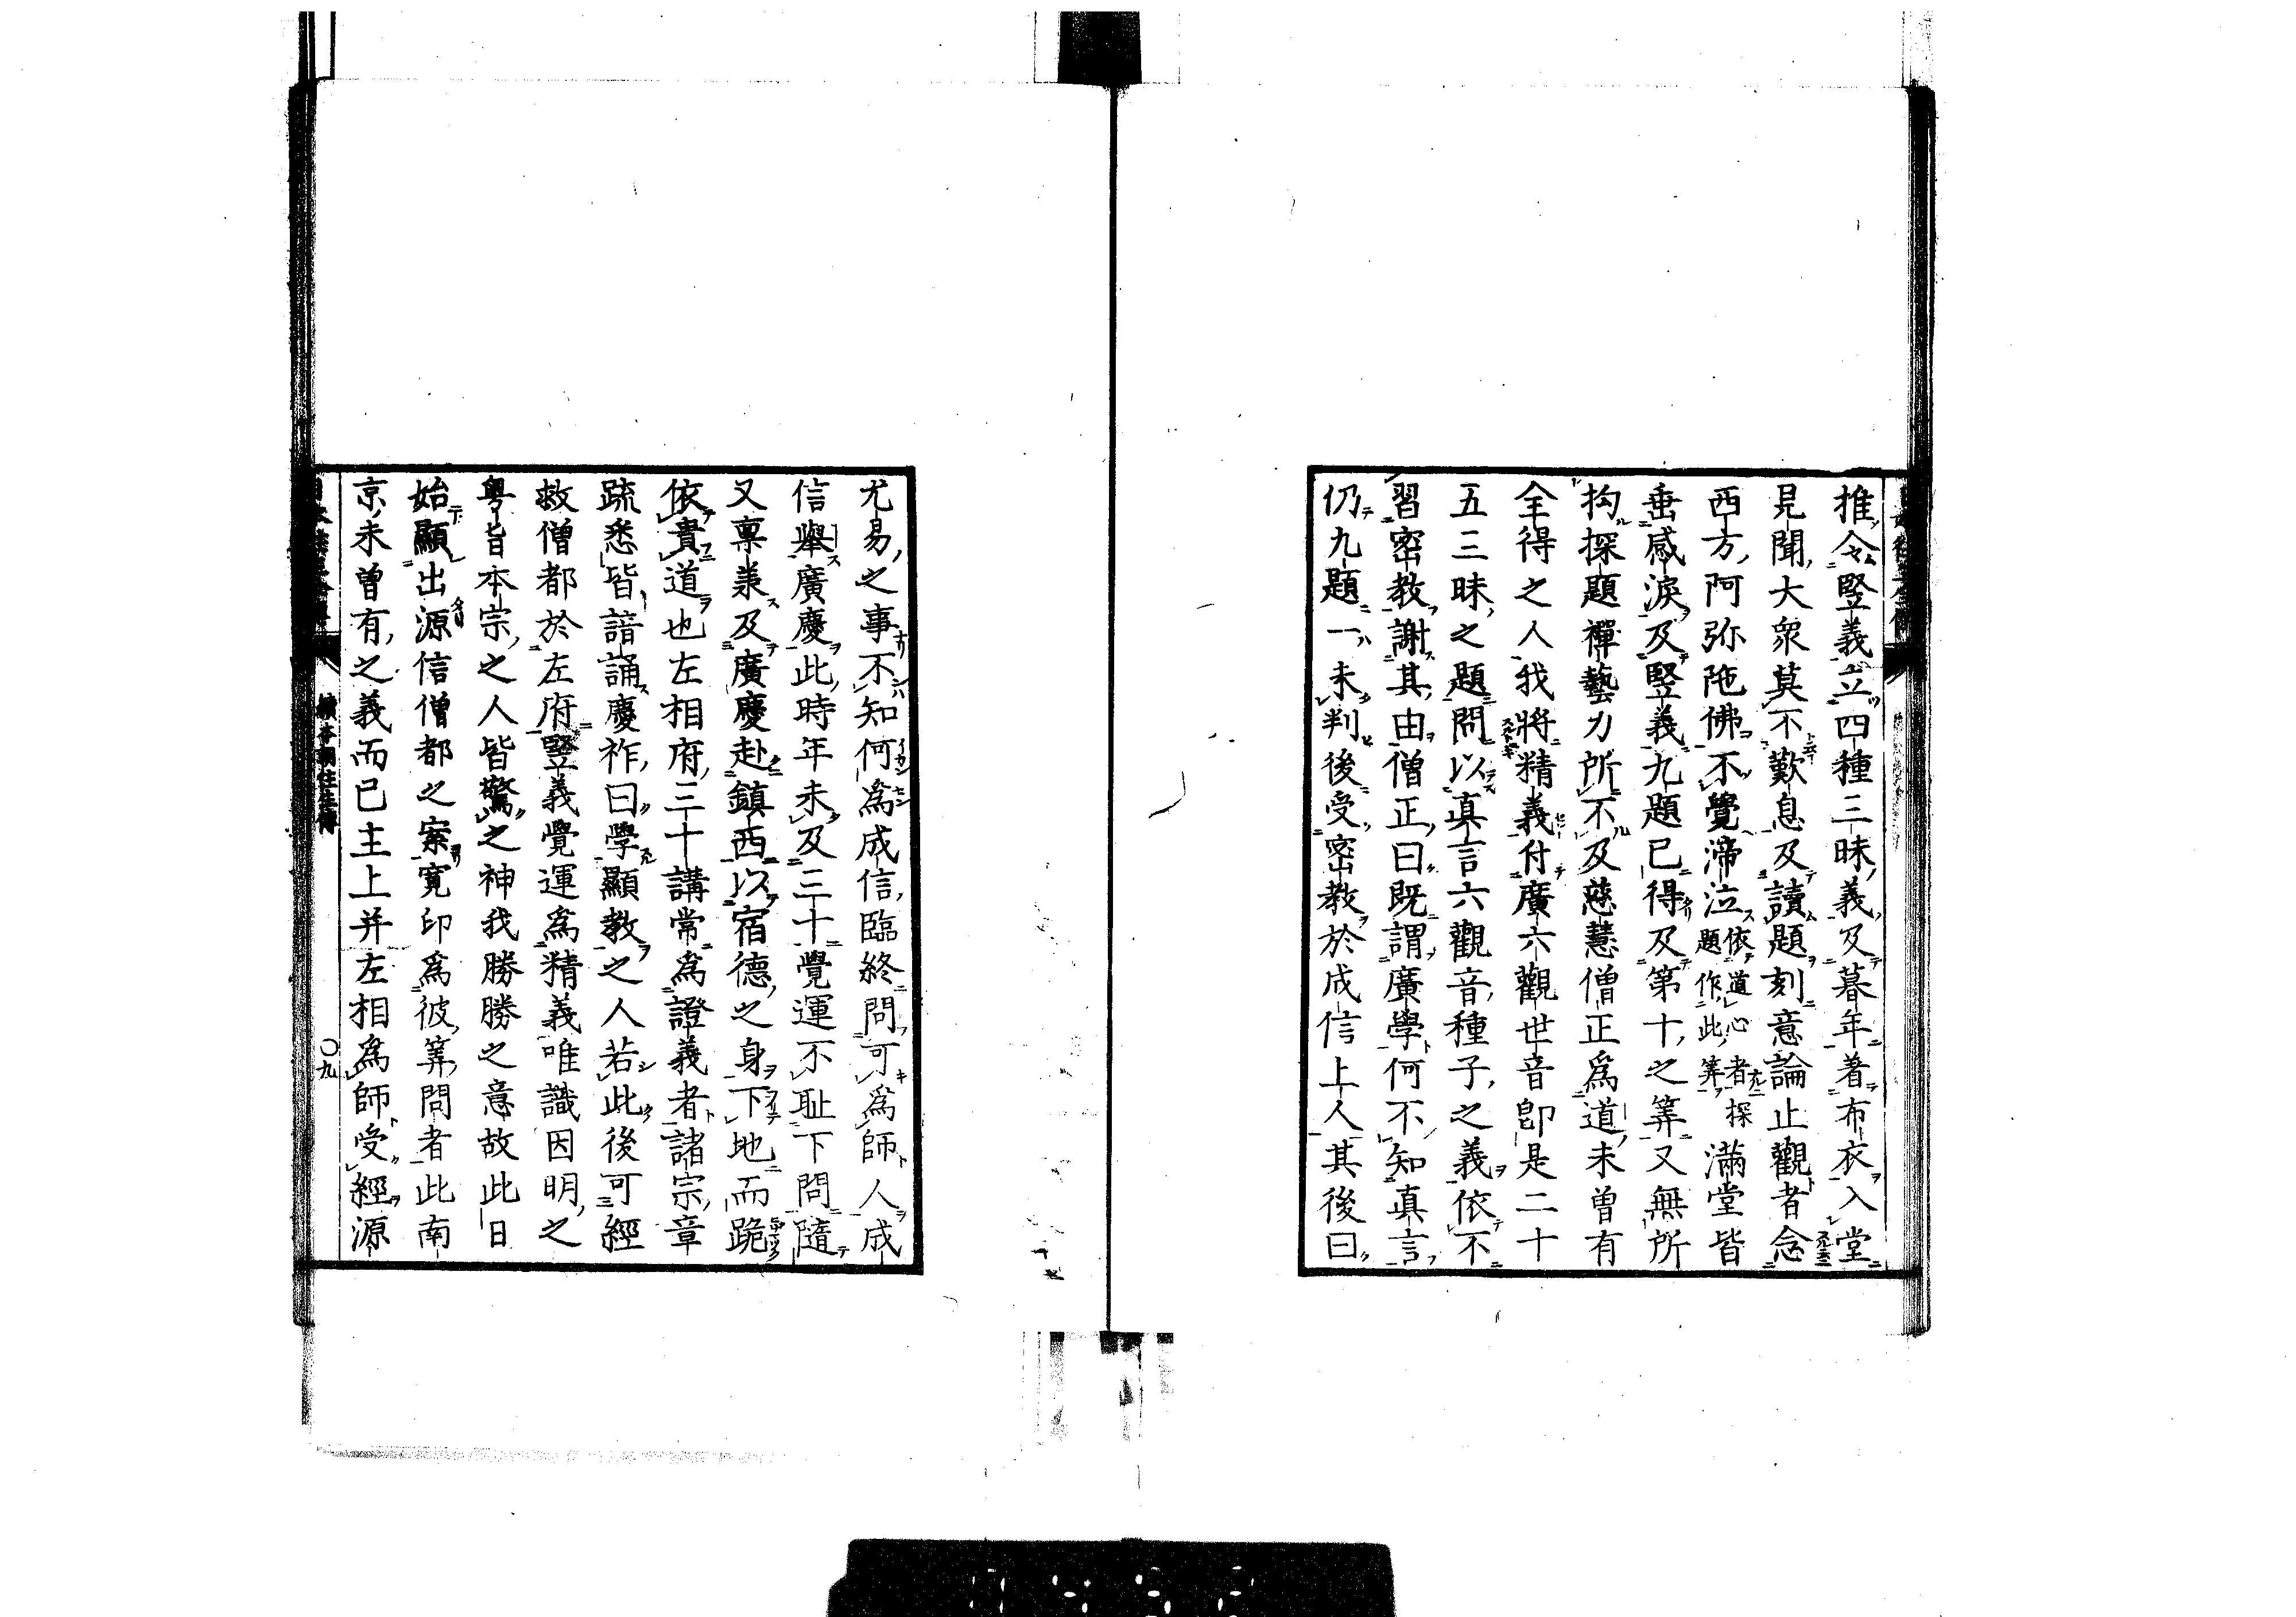 推令竪義立四種三昧義及暮年著布衣入堂
見聞大衆莫不歎息及讀題刻意論止觀者念
西方阿弥陁佛不覺渧泣依道心者探題作此筭滿堂皆
垂感淚及竪義九題已得及第十之筭又無所
拘探題禪藝力所不及慈慧僧正爲道未曾有
全得之人我將精義付廣六觀世音卽是二十
五三昧之題問以真言六觀音種子之義依不
習密教謝其由僧正曰既謂廣學何不知真言
仍九題一未判後受密教於成信上人其後曰
尤易之事不知何爲成信臨終問可爲師人成
信舉廣慶此時年未及三十覺運不耻下問隨
又禀羕及廣慶赴鎮西以宿德之身下地而跪
依貴道也左相府三十講常爲證義者諸宗章
疏悉皆諳誦慶祚曰學顯教之人若此後可經
救僧都於左府竪義覺運爲精義唯識因明之
粤旨本宗之人皆驚之神我勝勝之意故此日
始顯出源信僧都之案寬印爲彼筭問者此南
京未曾有之義而已主上并左相爲師受經源
續本朝往生傳
〇九